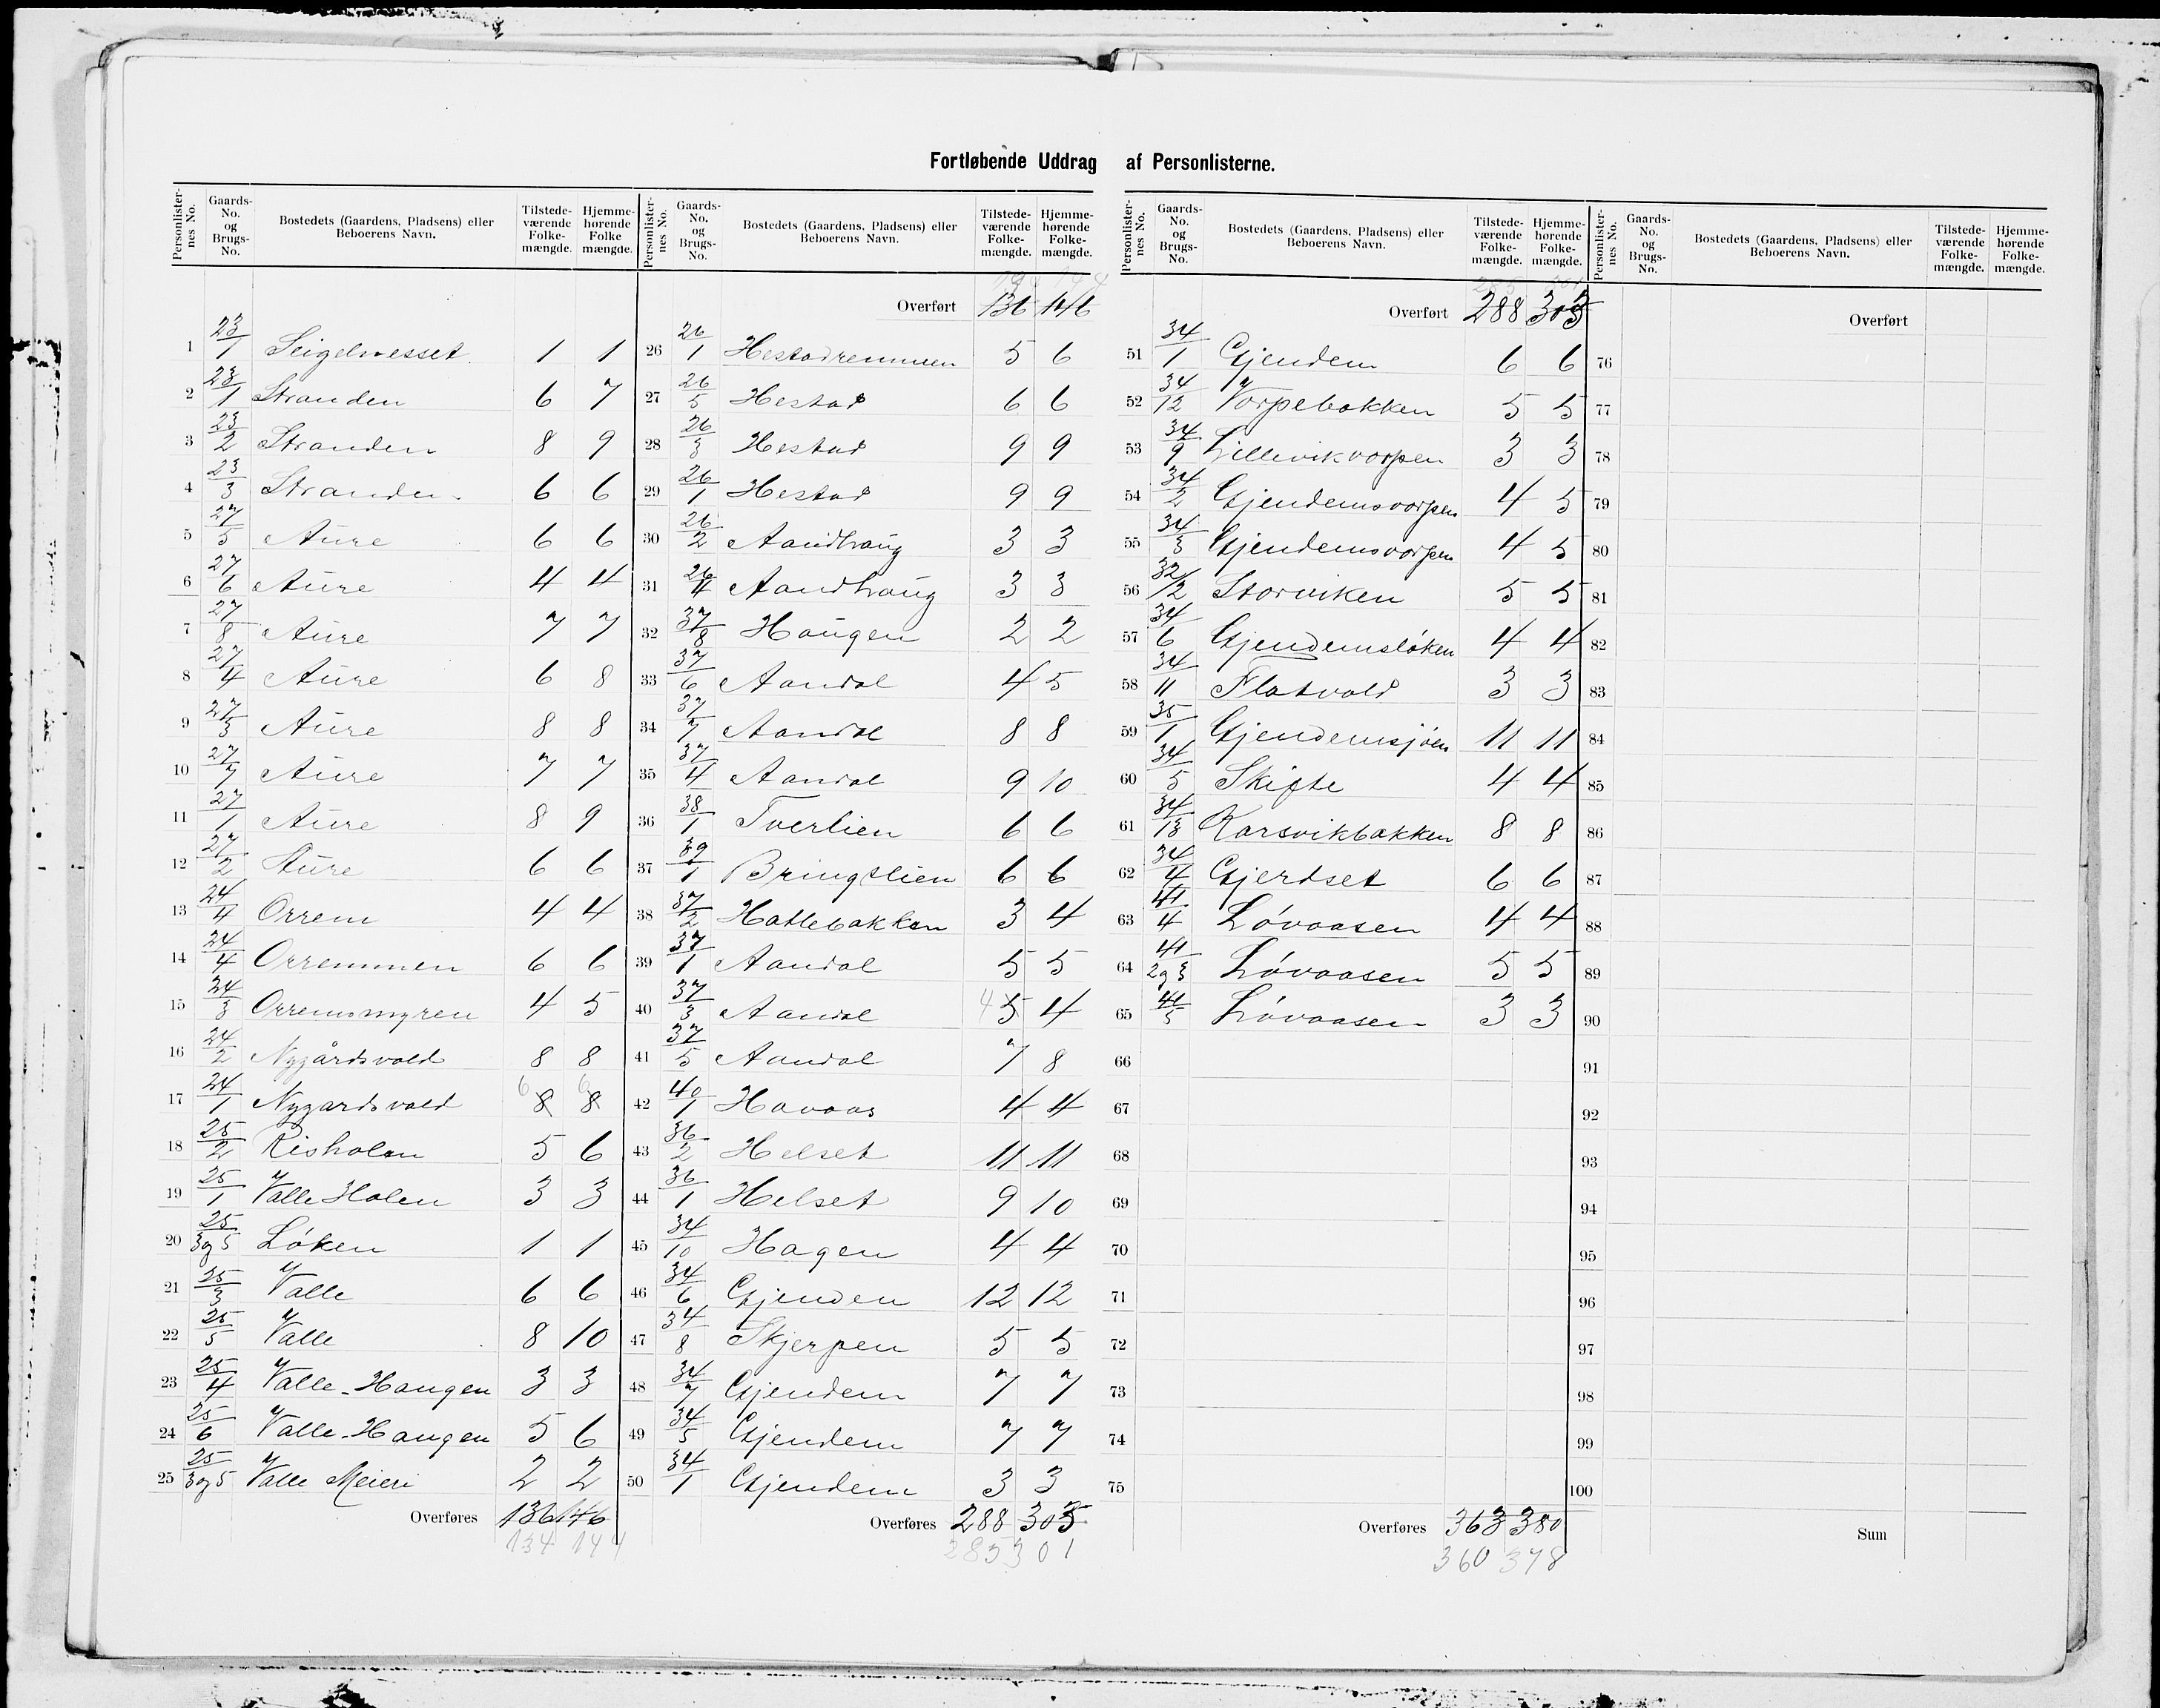 Fortløbende Uddrag af Personlisterne.
Personlisternes No. | Gaards-No. og Brugs-No. | Bostedets (Gaardens, Pladsens) eller Beboerens Navn. | Tilstedeværende Folkemængde. | Hjemmehørende Folkemængde.
1 23/1 1 1
2 23/1 Stranden 6 7
3 23/2 Stranden 8 9
4 23/3 Stranden 6 6
5 27/5 Aure 6 6
6 27/6 Aure 4 4
7 27/8 Aure 7 7
8 27/4 Aure 6 8
9 27/3 Aure 8 8
10 27/7 Aure 7 7
11 27/1 Aure 8 9
12 27/2 Aure 6 6
13 24/4 Orrem 4 4
14 24/4 Orremmen 6 6
15 24/3 Orremsmyren 4 5
16 24/2 Nygårdsvold 8 8
17 24/1 Nygardsvold 6 8 6 8
18 25/2 Risholen 5 6
19 25/1 Valle Holen 3 3
20 25/3 og 5 Løken 1 1
21 25/3 Valle 6 6
22 25/5 Valle 8 10
23 25/4 Valle-Haugen 3 3
24 25/6 Valle-Haugen 5 6
25 25/3 og 5 Valle Meieri 2 2
Overføres 136 146
134 144
Overført 136 146
26 26/1 Hestadremmen 5 6
27 26/5 Hestad 6 6
28 26/3 Hestad 9 9
29 26/1 Hestad 9 9
30 26/2 Aandhaug 3 3
31 26/4 Aandhaug 3 3
32 37/8 Haugen 2 2
33 37/6 Aandal 4 5
34 37/7 Aandal 8 8
35 37/4 Aandal 9 10
36 38/1 Tverlien 6 6
37 39/1 Bringslien 6 6
38 37/2 Hatlebakken 3 4
39 37/1 Aandal 5 5
40 37/3 Aandal 4 5 4
41 37/5 Aandal 7 8
42 40/1 Havaas 4 4
43 36/2 Helset 11 11
44 36/1 Helset 9 10
45 34/10 Hagen 4 4
46 34/6 Gjenden 12 12
47 34/8 Skjerpen 5 5
48 34/7 Gjendem 7 7
49 34/5 Gjendem 7 7
50 34/1 Gjendem 3 3
Overføres 288 303
285 301
285 301
Overført 288 303
51 34/1 Gjendem 6 6
52 34/12 Vorpebakken 5 5
53 34/9 Lillevikvorpen 3 3
54 34/2 Gjendemsvorpen 4 5
55 34/3 Gjendemsvorpen 4 5
56 32/2 Storviken 5 5
57 34/6 Gjendemsløken 4 4
58 34/11 Flatvold 3 3
59 35/1 Gjendemsjøen 11 11
60 34/5 Skifte 4 4
61 34/13 Karsvikbakken 8 8
62 34/4 Gjerdset 6 6
63 41/4 Løvaasen 4 4
64 41/2 og 3 Løvaasen 5 5
65 41/5 Løvaasen 3 3
66
67
68
69
70
71
72
73
74
75
Overføres 363 380
360 378
Overført
76
77
78
79
80
81
82
83
84
85
86
87
88
89
90
91
92
93
94
95
96
97
98
99
100
Sum